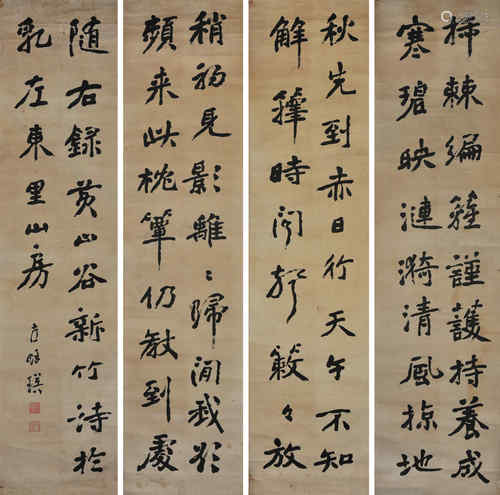 插棘編籬謹護持養成
寒碧映漣漪清風掠地
秋先到赤日行天午不知
解籜時聞聲簌〻放
稍初見影離〻歸閒我欲
頻來此枕簟仍教到處
隨右錄黃山谷新竹詩於
乳左東里山房